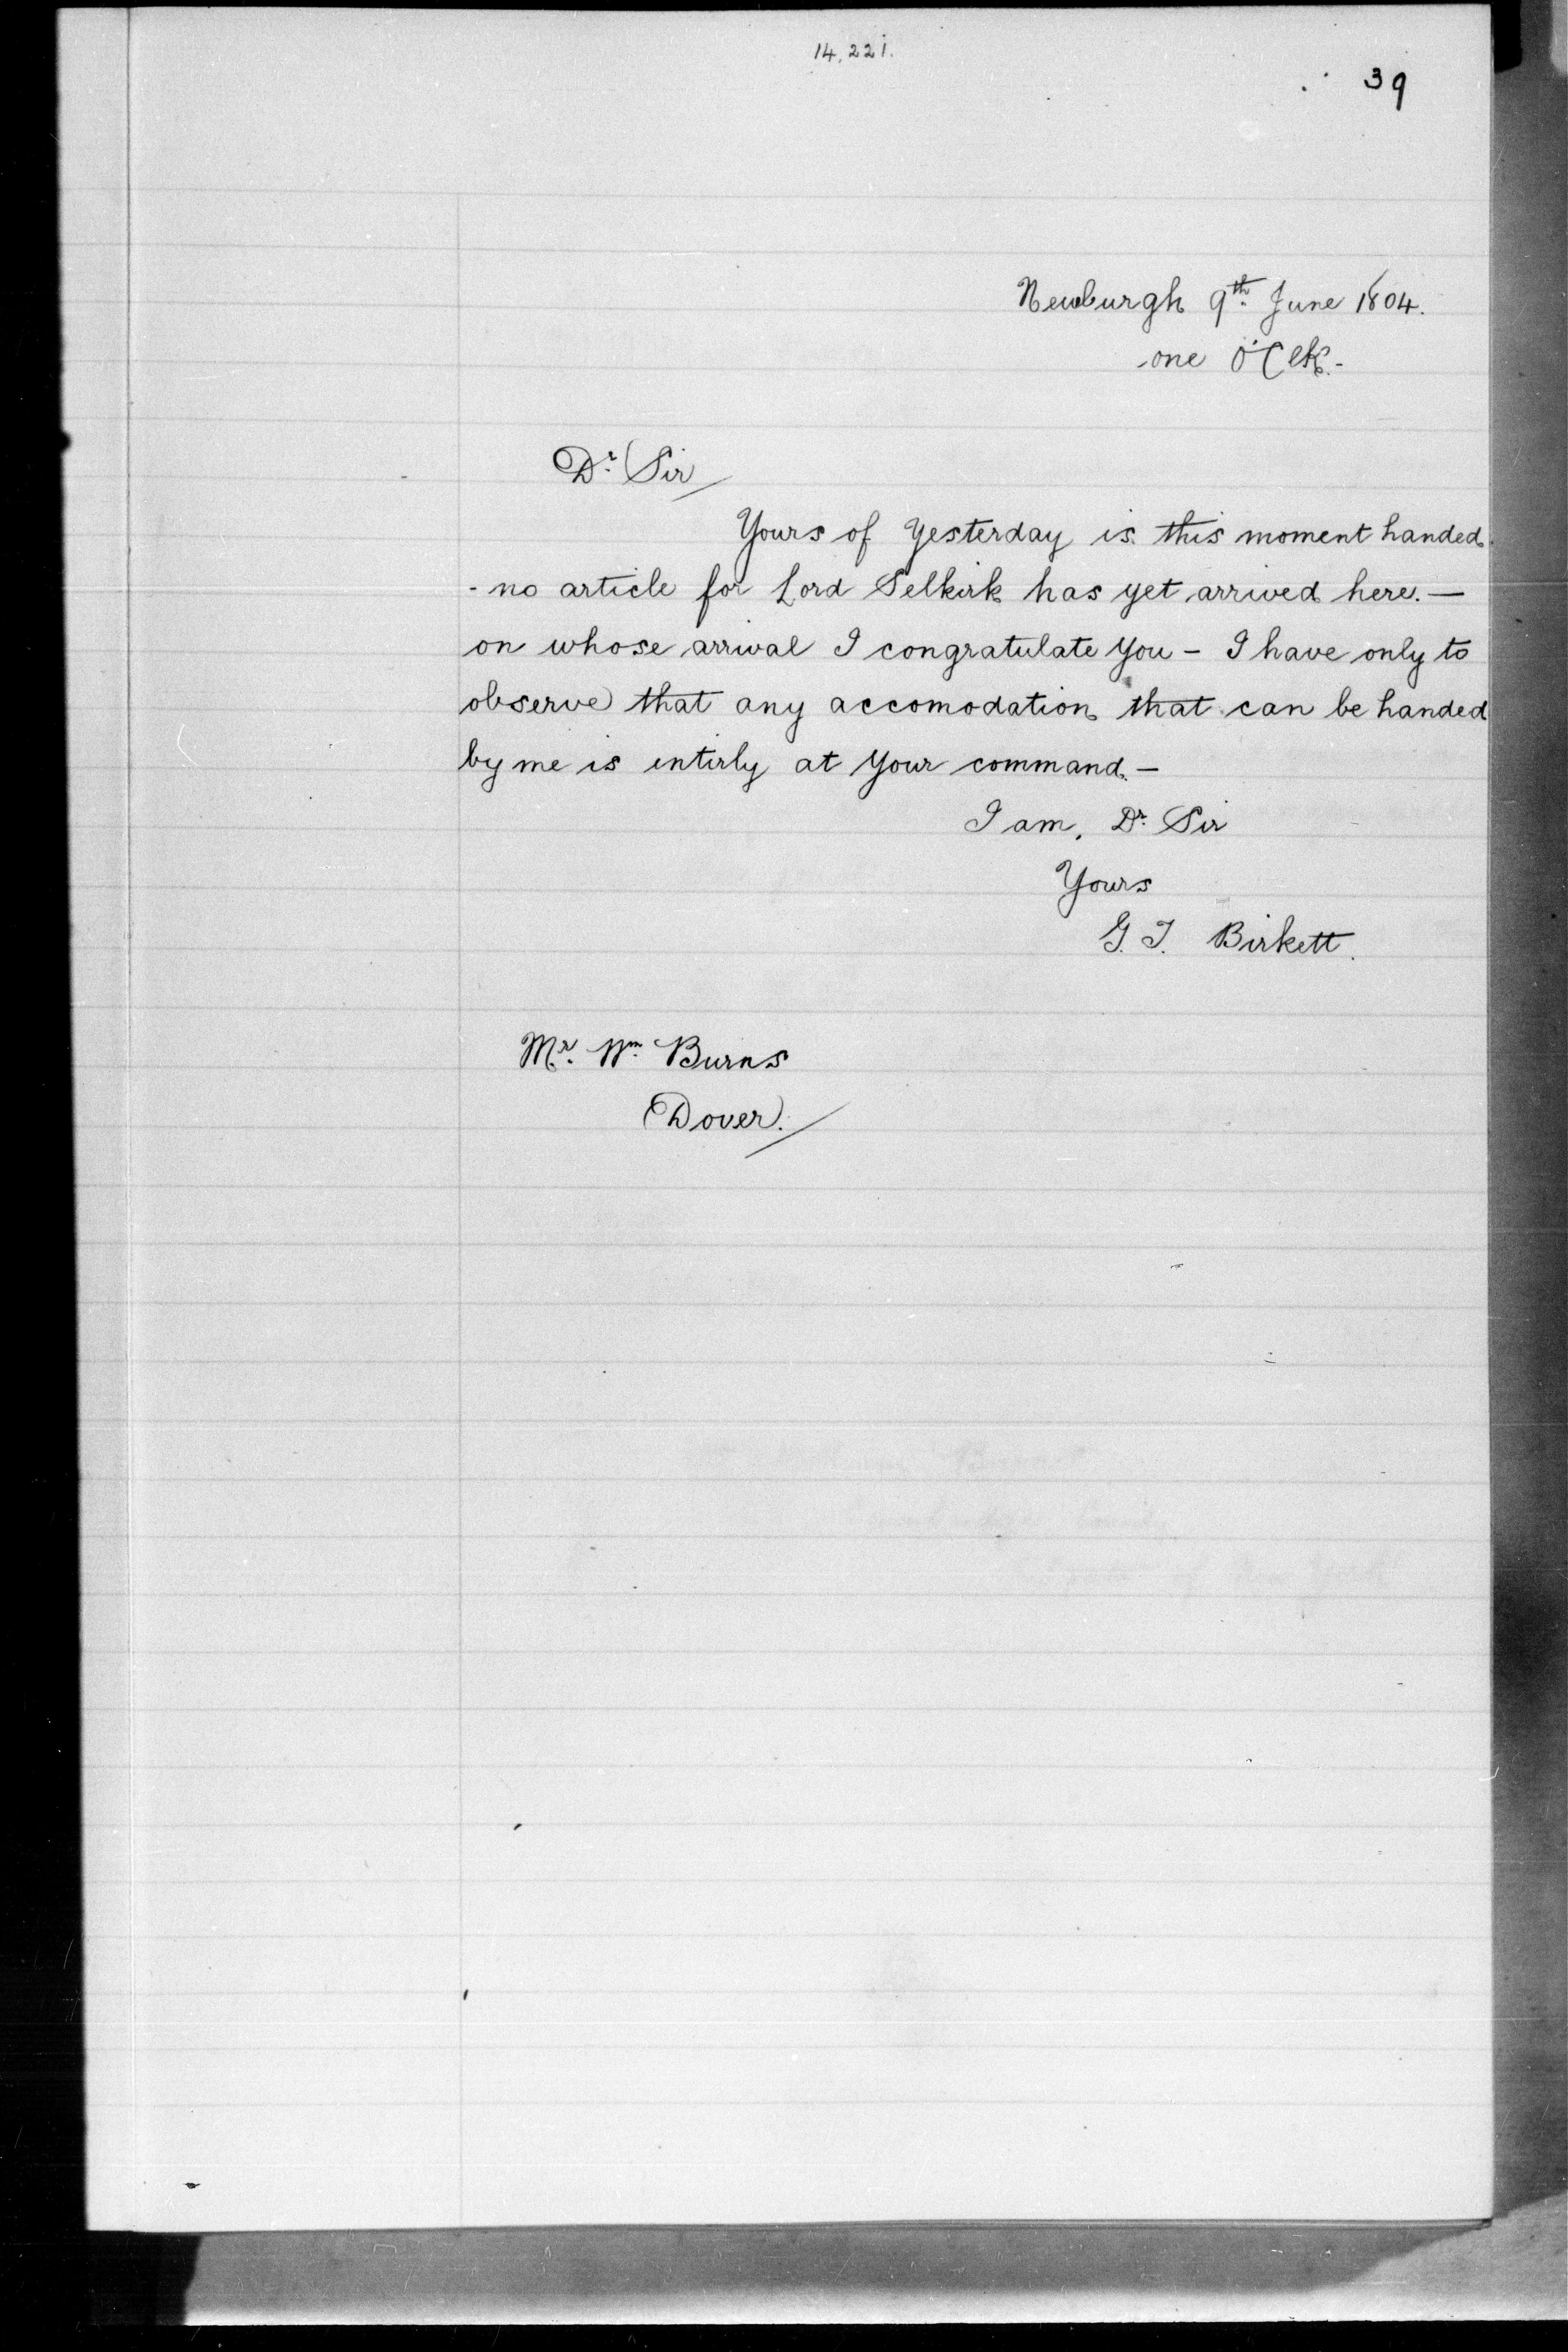 14,221.
39
Newburgh 9th. June 1804.
one O'Clk.-
Dr. Sir
Yours of Yesterday is this moment handed.
- no article for Lord Selkirk has yet arrived here. —
on whose arrival I congratulate You - I have only to
observe that any accomodation that can be handed
by me is entirly at Your command. —
I am, Dr. Sir
Yours
G. T. Birkett.
Mr. Wm. Burns
Dover.